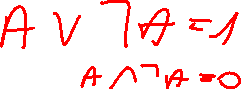 A ∨ ¬A = 1
A ∧ ¬A = 0